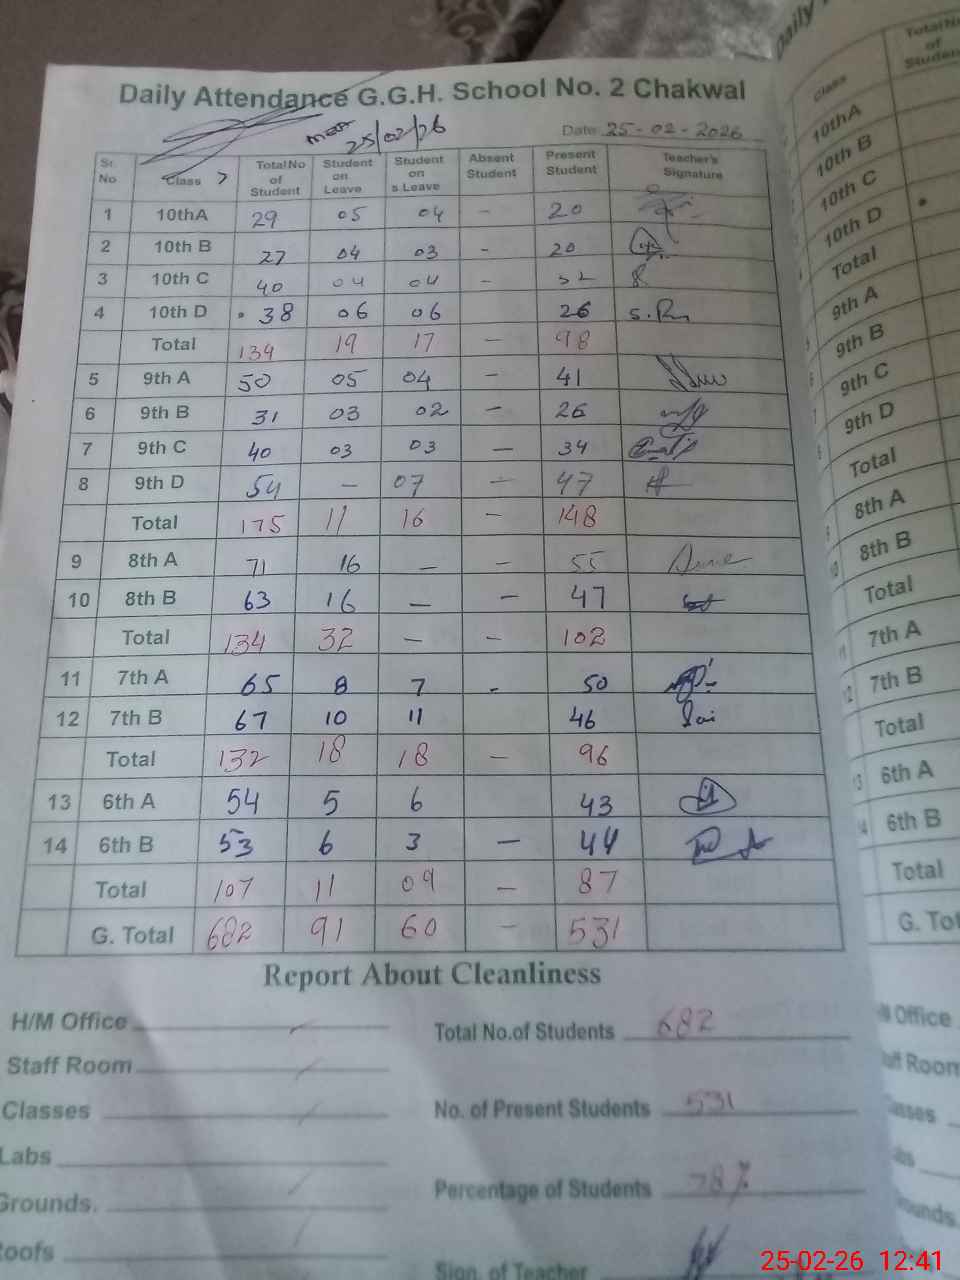 Daily Attendance G.G.H. School No. 2 Chakwal
25/02/26
Date 25-02-2026
Sr. No Class Total No of Student Student on Leave Student on s.Leave Absent Student Present Student Teacher's Signature
1 10thA 29 05 04 - 20
2 10th B 27 04 03 - 20
3 10th C 40 04 04 - 32
4 10th D 38 06 06 26
Total 134 19 17 - 98
5 9th A 50 05 04 - 41
6 9th B 31 03 02 - 26
7 9th C 40 03 03 - 34
8 9th D 54 - 07 - 47
Total 175 11 16 - 148
9 8th A 71 16 - - 55
10 8th B 63 16 - - 47
Total 134 32 - - 102
11 7th A 65 8 7 - 50
12 7th B 67 10 11 46
Total 132 18 18 - 96
13 6th A 54 5 6 43
14 6th B 53 6 3 - 44
Total 107 11 09 - 87
G. Total 682 91 60 - 531
Report About Cleanliness
H/M Office
Total No.of Students 682
Staff Room
Classes
No. of Present Students 531
Labs
Percentage of Students 78%
Grounds.
Roofs
Sign. of Teacher
Daily
Class Total No of Student
10thA
10th B
10th C
10th D
Total
9th A
9th B
9th C
9th D
Total
8th A
8th B
Total
7th A
7th B
Total
13 6th A
6th B
Total
G. Tot
Office
Room
25-02-26 12:41